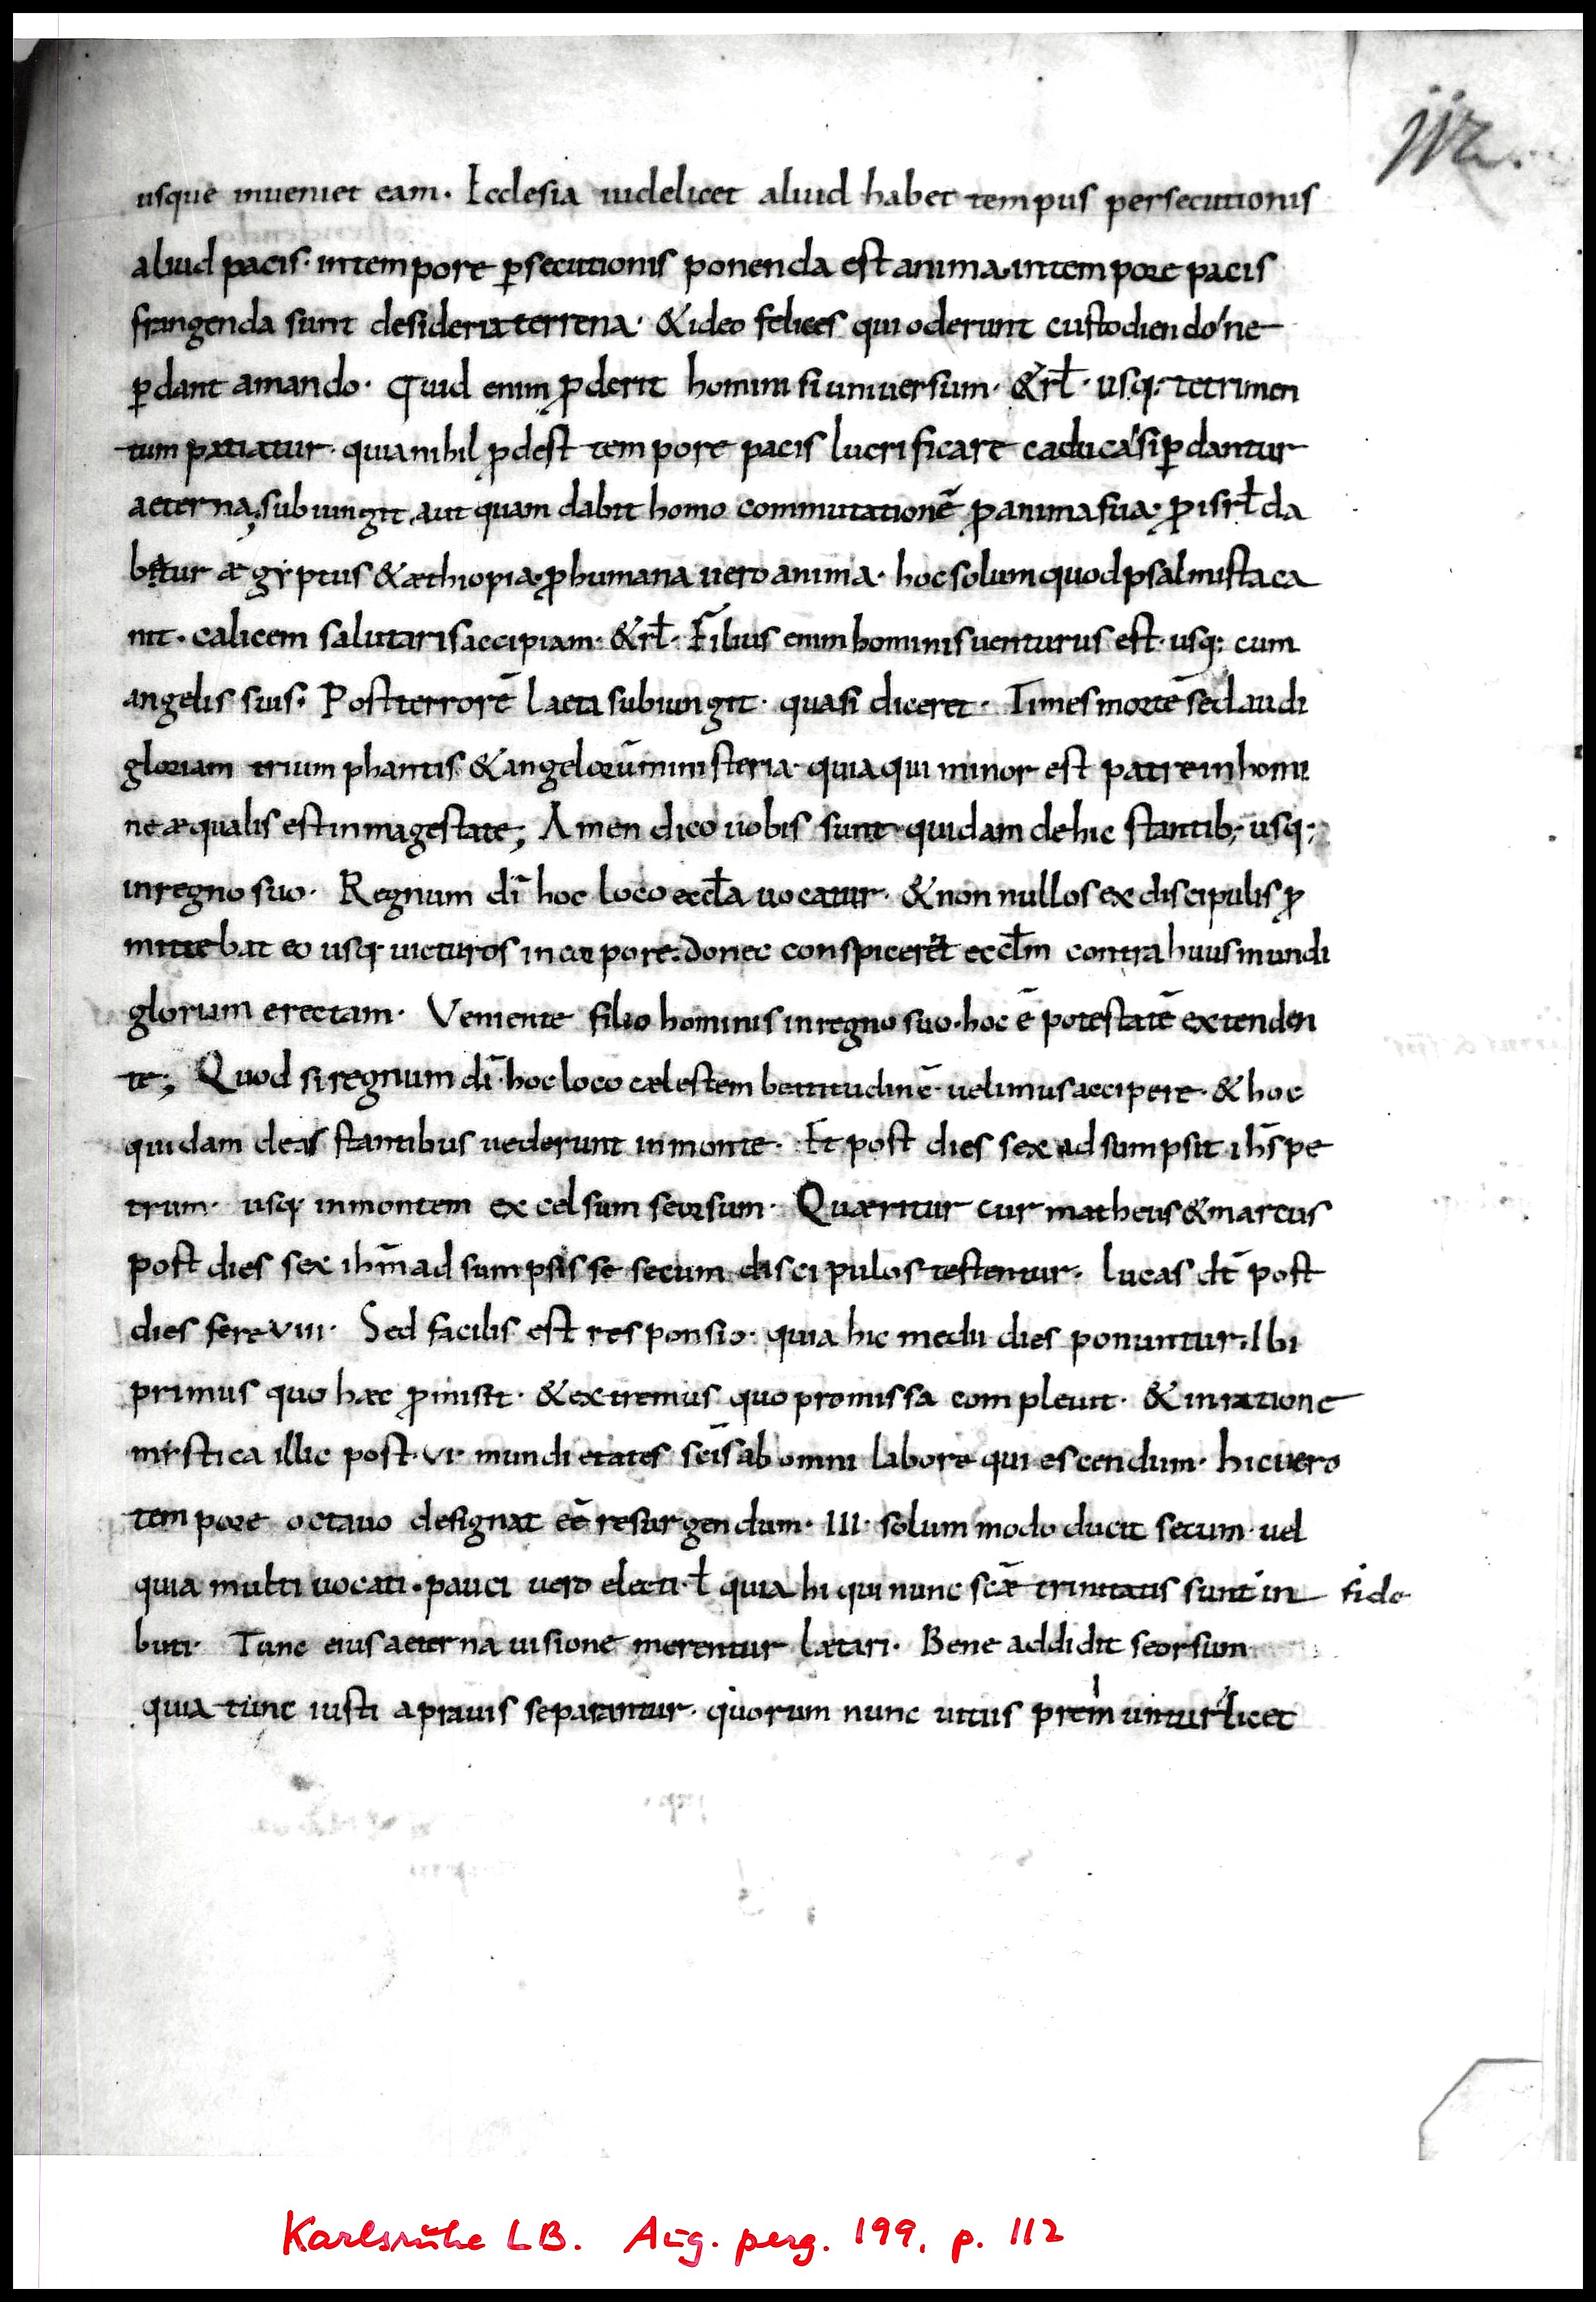 112.
usque inueniet eam. Ecclesia uidelicet aliud habet tempus persecutionis
aliud pacis. in tempore p̲secutionis ponenda est anima. in tempore pacis
frangenda sunt desideria terrena. & ideo felices qui oderunt custodiendo ne
p̲dant amando. Quid enim ꝓderit homini si uniuersum. & rƚ. usq; tetrimen
tum patiatur. quia nihil ꝓdest tempore pacis lucrificare caduca si p̲dantur
aeterna; subiungit. aut quam dabit homo commutationē ꝓ anima sua. ꝓ isrƚ da
bitur ægyptus & æthiopia. ꝓ humana uero anima. hoc solum quod psalmista ca
nit. calicem salutaris accipiam. & rƚ. Filius enim hominis uenturus est. usq; cum
angelis suis. Post terrorē laeta subiungit. quasi diceret. Times mortē sed audi
gloriam triumphantis & angelorū ministeria. quia qui minor est patre in homi
ne æqualis est in magestate; Amen dico uobis sunt quidam de hic stantib; usq;
in regno suo. Regnum dī hoc loco eccƚa uocatur. & non nullos ex discipulis ꝓ
mittebat eo usq; uicturos in corpore. donec conspicerēt eccƚm contra huius mundi
gloriam erectam. Veniente filio hominis in regno suo. hoc ē potestatē extenden
te; Quod si regnum dī. hoc loco cælestem beatitudinē. uelimus accipere. & hoc
quidam de his stantibus uederunt in monte. Et post dies sex adsumpsit ihs̄ pe
trum. usq; in montem excelsum seorsum. Quæritur cur matheus & marcus
post dies sex ihm̄ adsumpsisse secum discipulos testentur. lucas dt̄ post
dies fere VIII. Sed facilis est responsio. quia hic medii dies ponuntur. Ibi
primus quo hæc ꝓmisit. & extremus quo promissa compleuit. & in ratione
mistica illic post. VI. mundi etates scīs ab omni labore quiescendum. hic uero
tempore octauo designat eē resurgendum. III. solum modo ducit secum. uel
quia multi uocati. pauci uero electi. ƚ quia hi qui nunc scǣ trinitatis sunt in fide
buti. Tunc eius aeterna uisione merentur lætari. Bene addidit seorsum
quia tunc iusti a prauis separantur. quorum nunc uitiis premuntur licet
Karlsruhe LB. Aug. perg. 199, p. 112